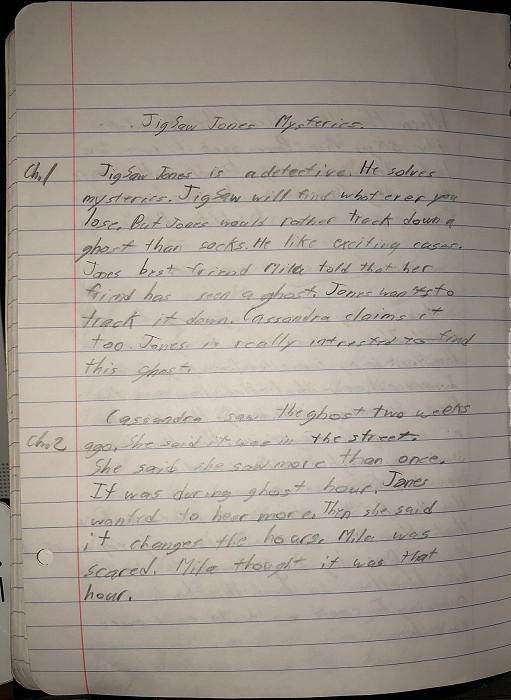 JigSaw Jones Mysteries.
Ch.1 JigSaw Jones is a detective. He solves
mysteries. JigSaw will find what ever you
lose. But Jones would rather track down a
ghost than socks. He like exciting cases.
Jones best friend Mila told that her
friend has seen a ghost. Jones wants to
track it down. Cassandra claims it
too. Jones is really intrested to find
this ghost.
Cassandra saw the ghost two weeks
Ch.2 ago. She said it was in the street.
She said she saw more than once.
It was during ghost hour. Jones
wanted to hear more. Then she said
it changes the hours. Mila was
scared. Mila thought it was that
hour.